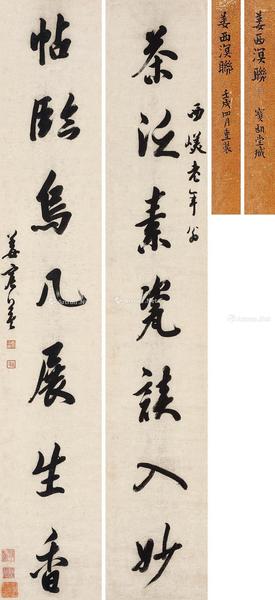 姜西溟聯
姜西溟聯 壬戌四月重裝
西
老年翁
茶泛素瓷談入妙
帖臨烏几展生香
姜宸英